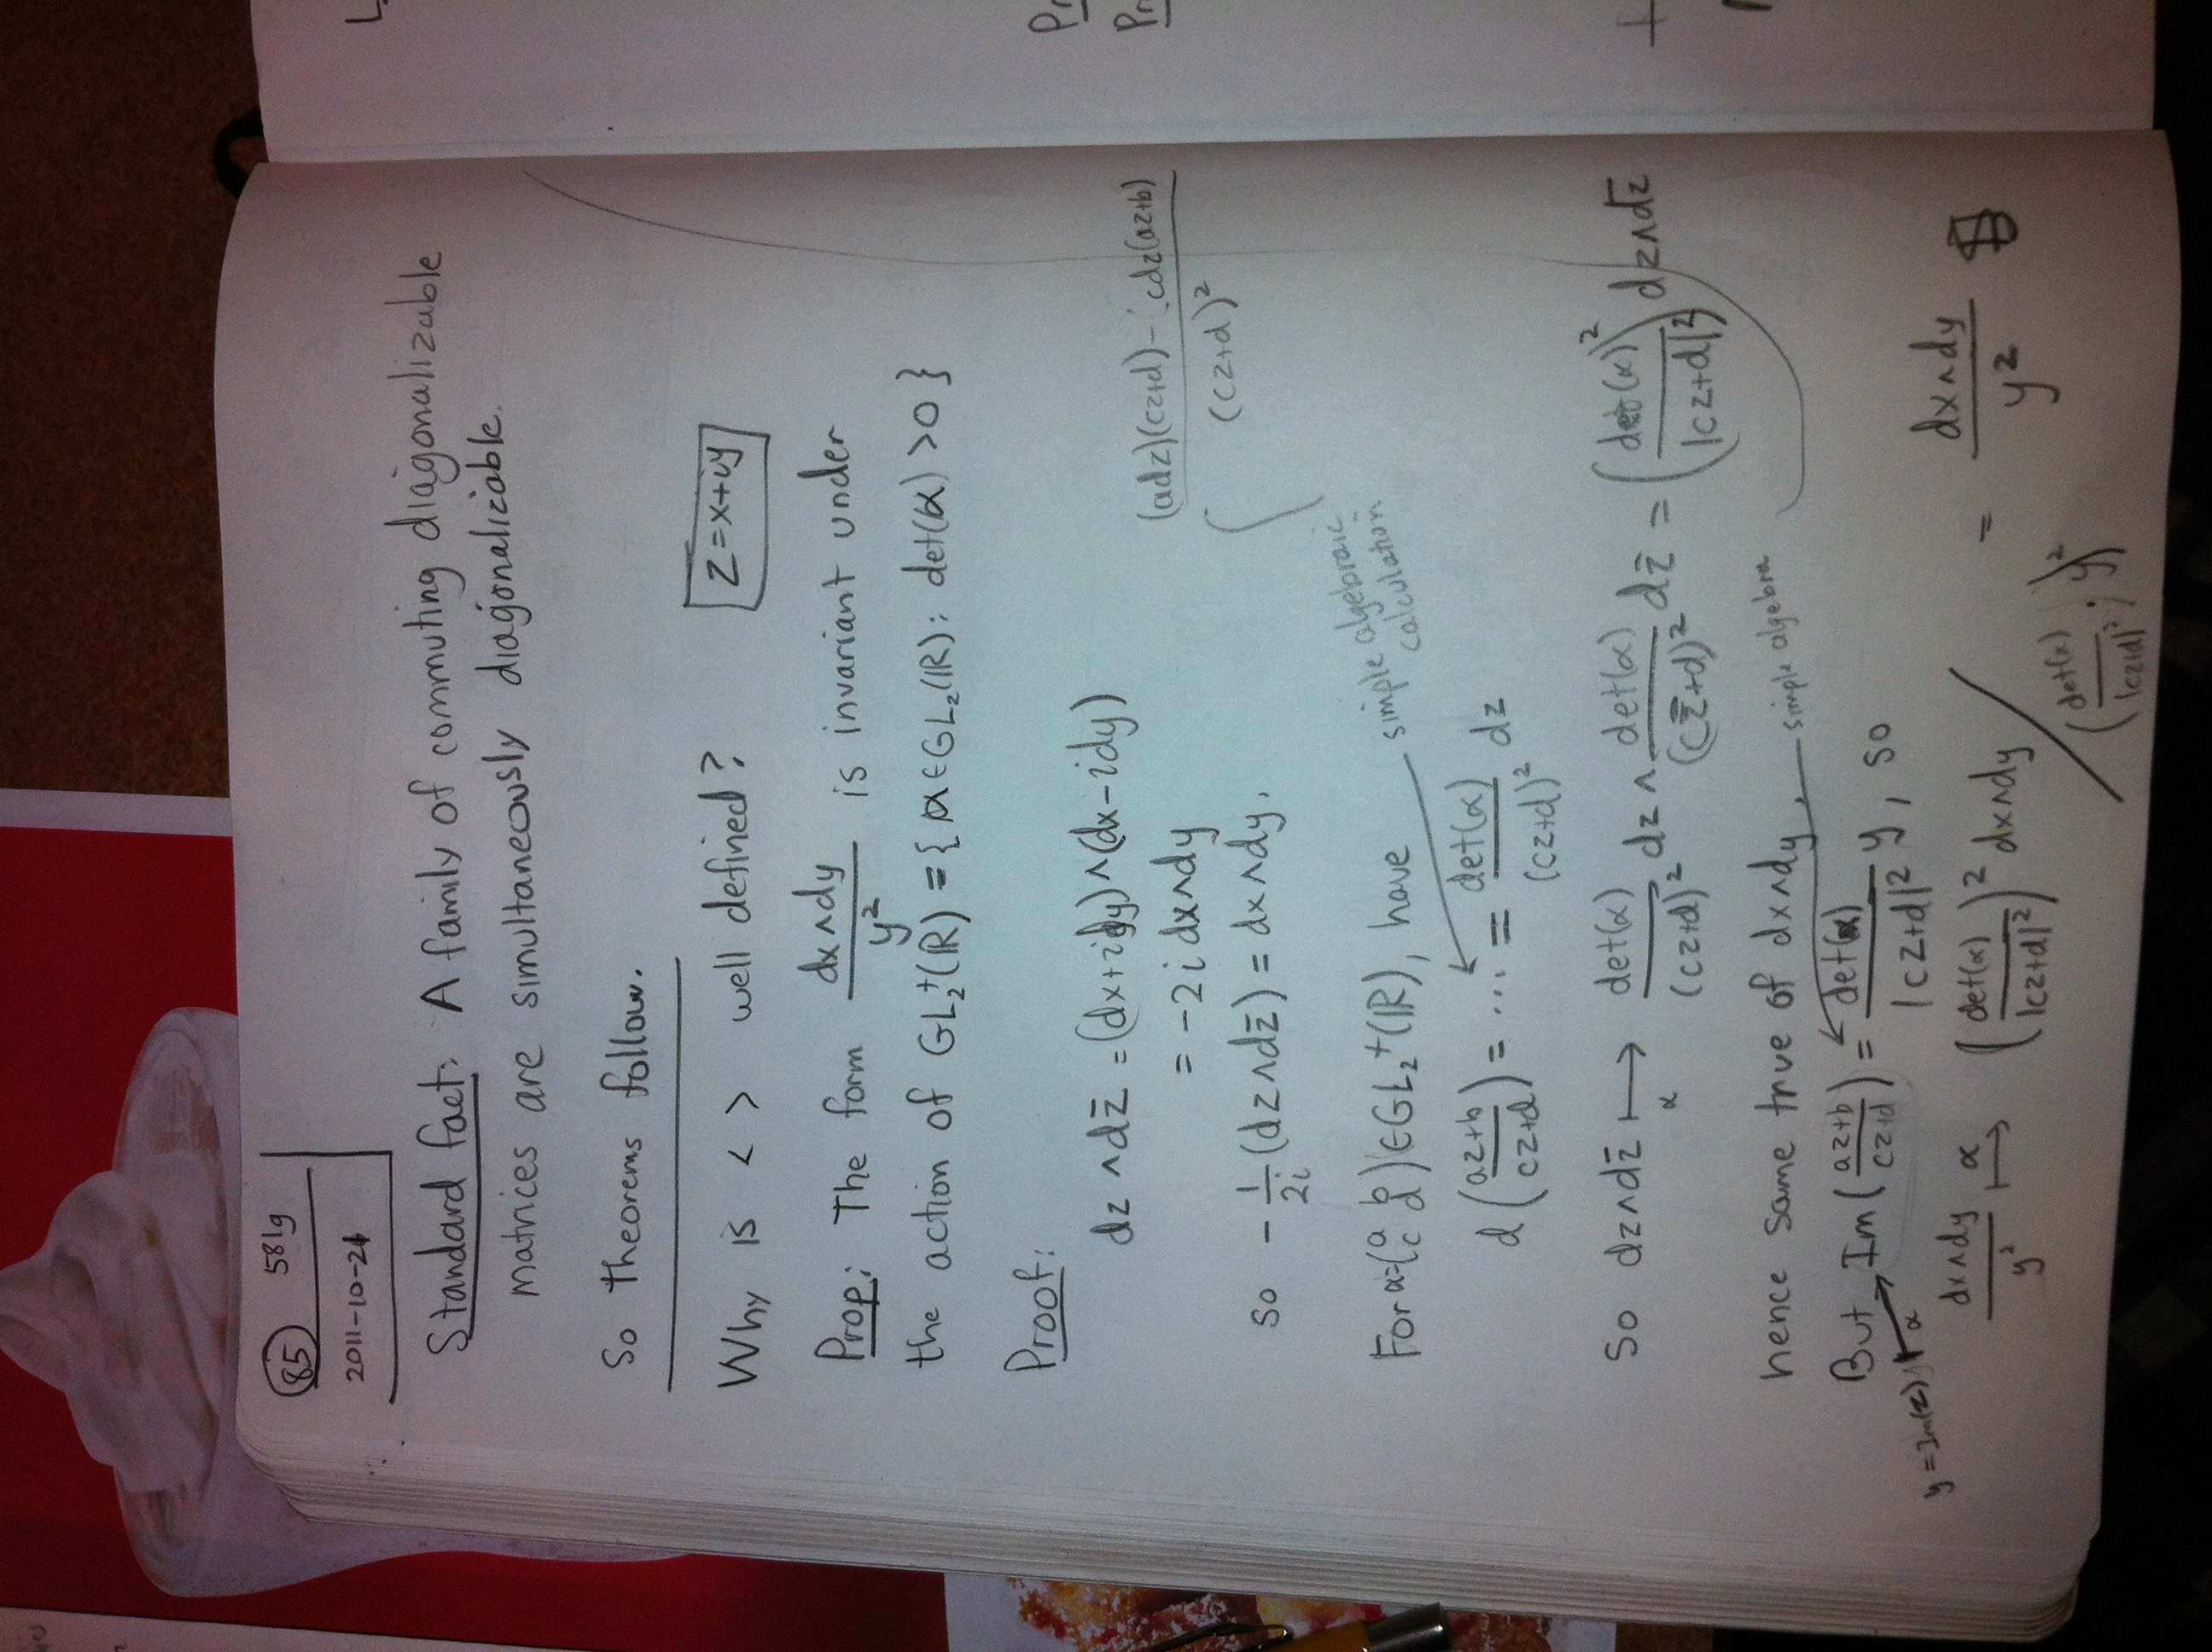 85 581g
2011-10-24
Standard fact: A family of commuting diagonalizable
matrices are simultaneously diagonalizable.
So theorems follow.
Why is < > well defined? z=x+iy
Prop: The form dx∧dy/y² is invariant under
the action of GL₂⁺(ℝ) = {α∈GL₂(ℝ): det(α)>0}
Proof:
dz∧dz̄ = (dx+idy)∧(dx-idy)
= -2i dx∧dy
(adz)(cz+d)-(cdz(az+b)/(cz+d)²
so -1/2i (dz∧dz̄) = dx∧dy.
simple algebraic
calculation
For α=(a b c d)∈GL₂⁺(ℝ), have
d((az+b)/(cz+d)) = .... = det(α)/(cz+d)² dz
So dz∧dz̄ ⟼α det(α)/(cz+d)² dz ∧ det(α)/(cz̄+d)² dz̄ = (det(α)/|cz+d|²)² dz∧dz̄
hence same true of dx∧dy. simple algebra
But Im((az+b)/(cz+d)) = det(α)/|cz+d|² y, so
y=Im(z) ↦α
dx∧dy/y² ⟼α (det(α)/|cz+d|²)² dx∧dy / (det(α)/|cz+d|² y)² = dx∧dy/y²